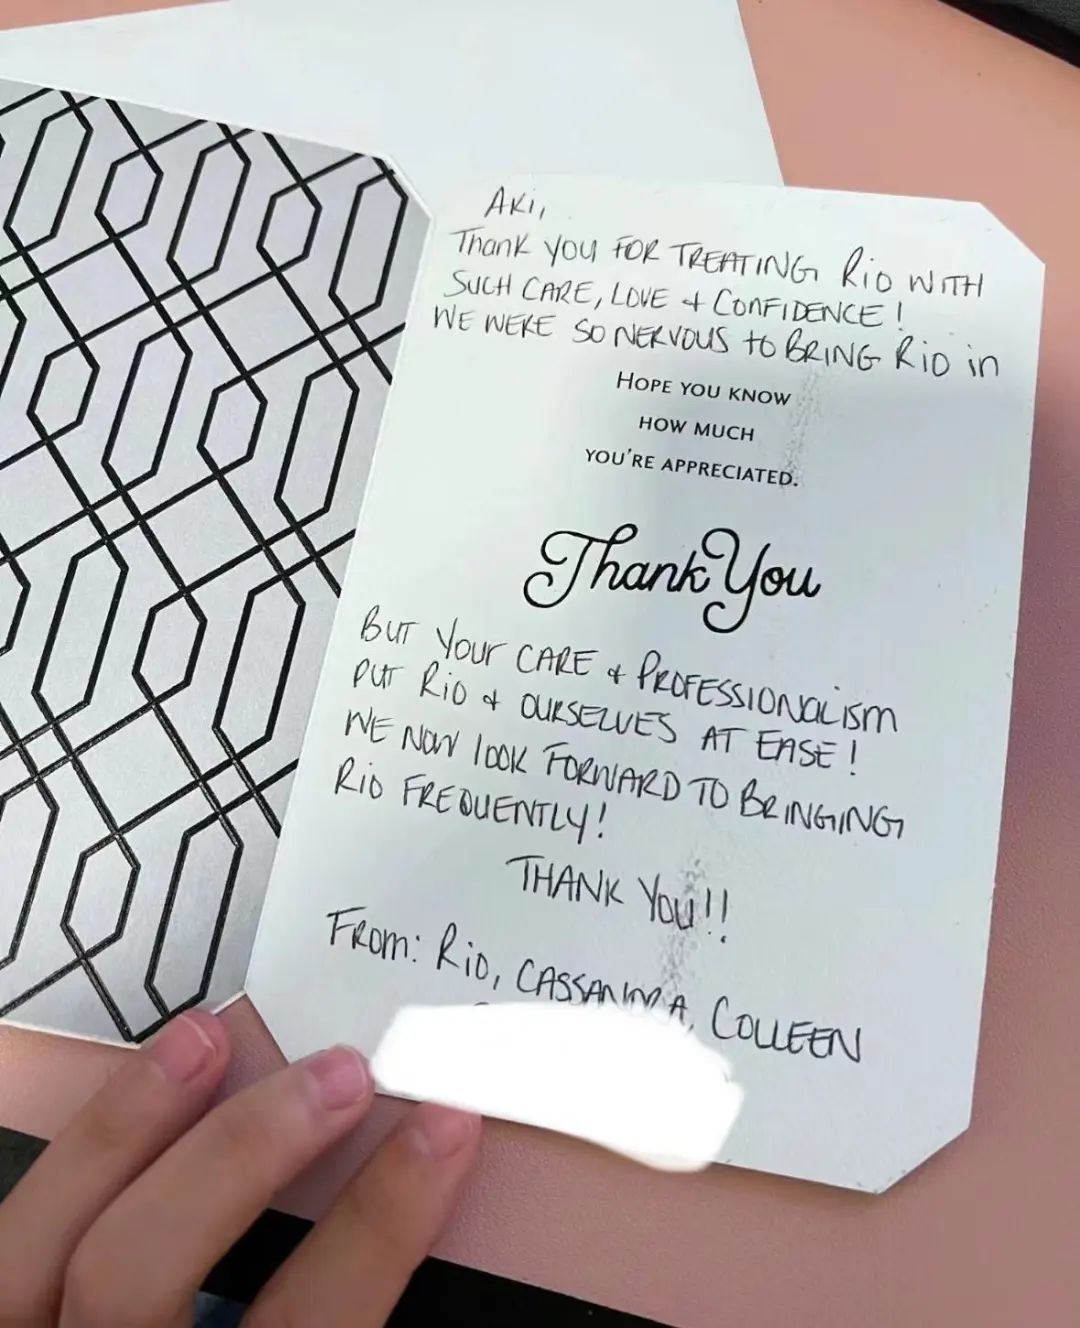 Aki,
Thank you FOR TREATING Rio WITH
SUCH CARE, LOVE & CONFIDENCE!
WE WERE SO NERVOUS to BRING Rio in
HOPE YOU KNOW
HOW MUCH
YOU'RE APPRECIATED.
Thank You
BUT Your CARE & PROFESSIONALISM
PUT Rio & OURSELVES AT EASE!
WE NOW look FORWARD TO BRINGING
Rio FREQUENTLY!
THANK YOU!!
From: Rio, CASSANDRA, COLLEEN